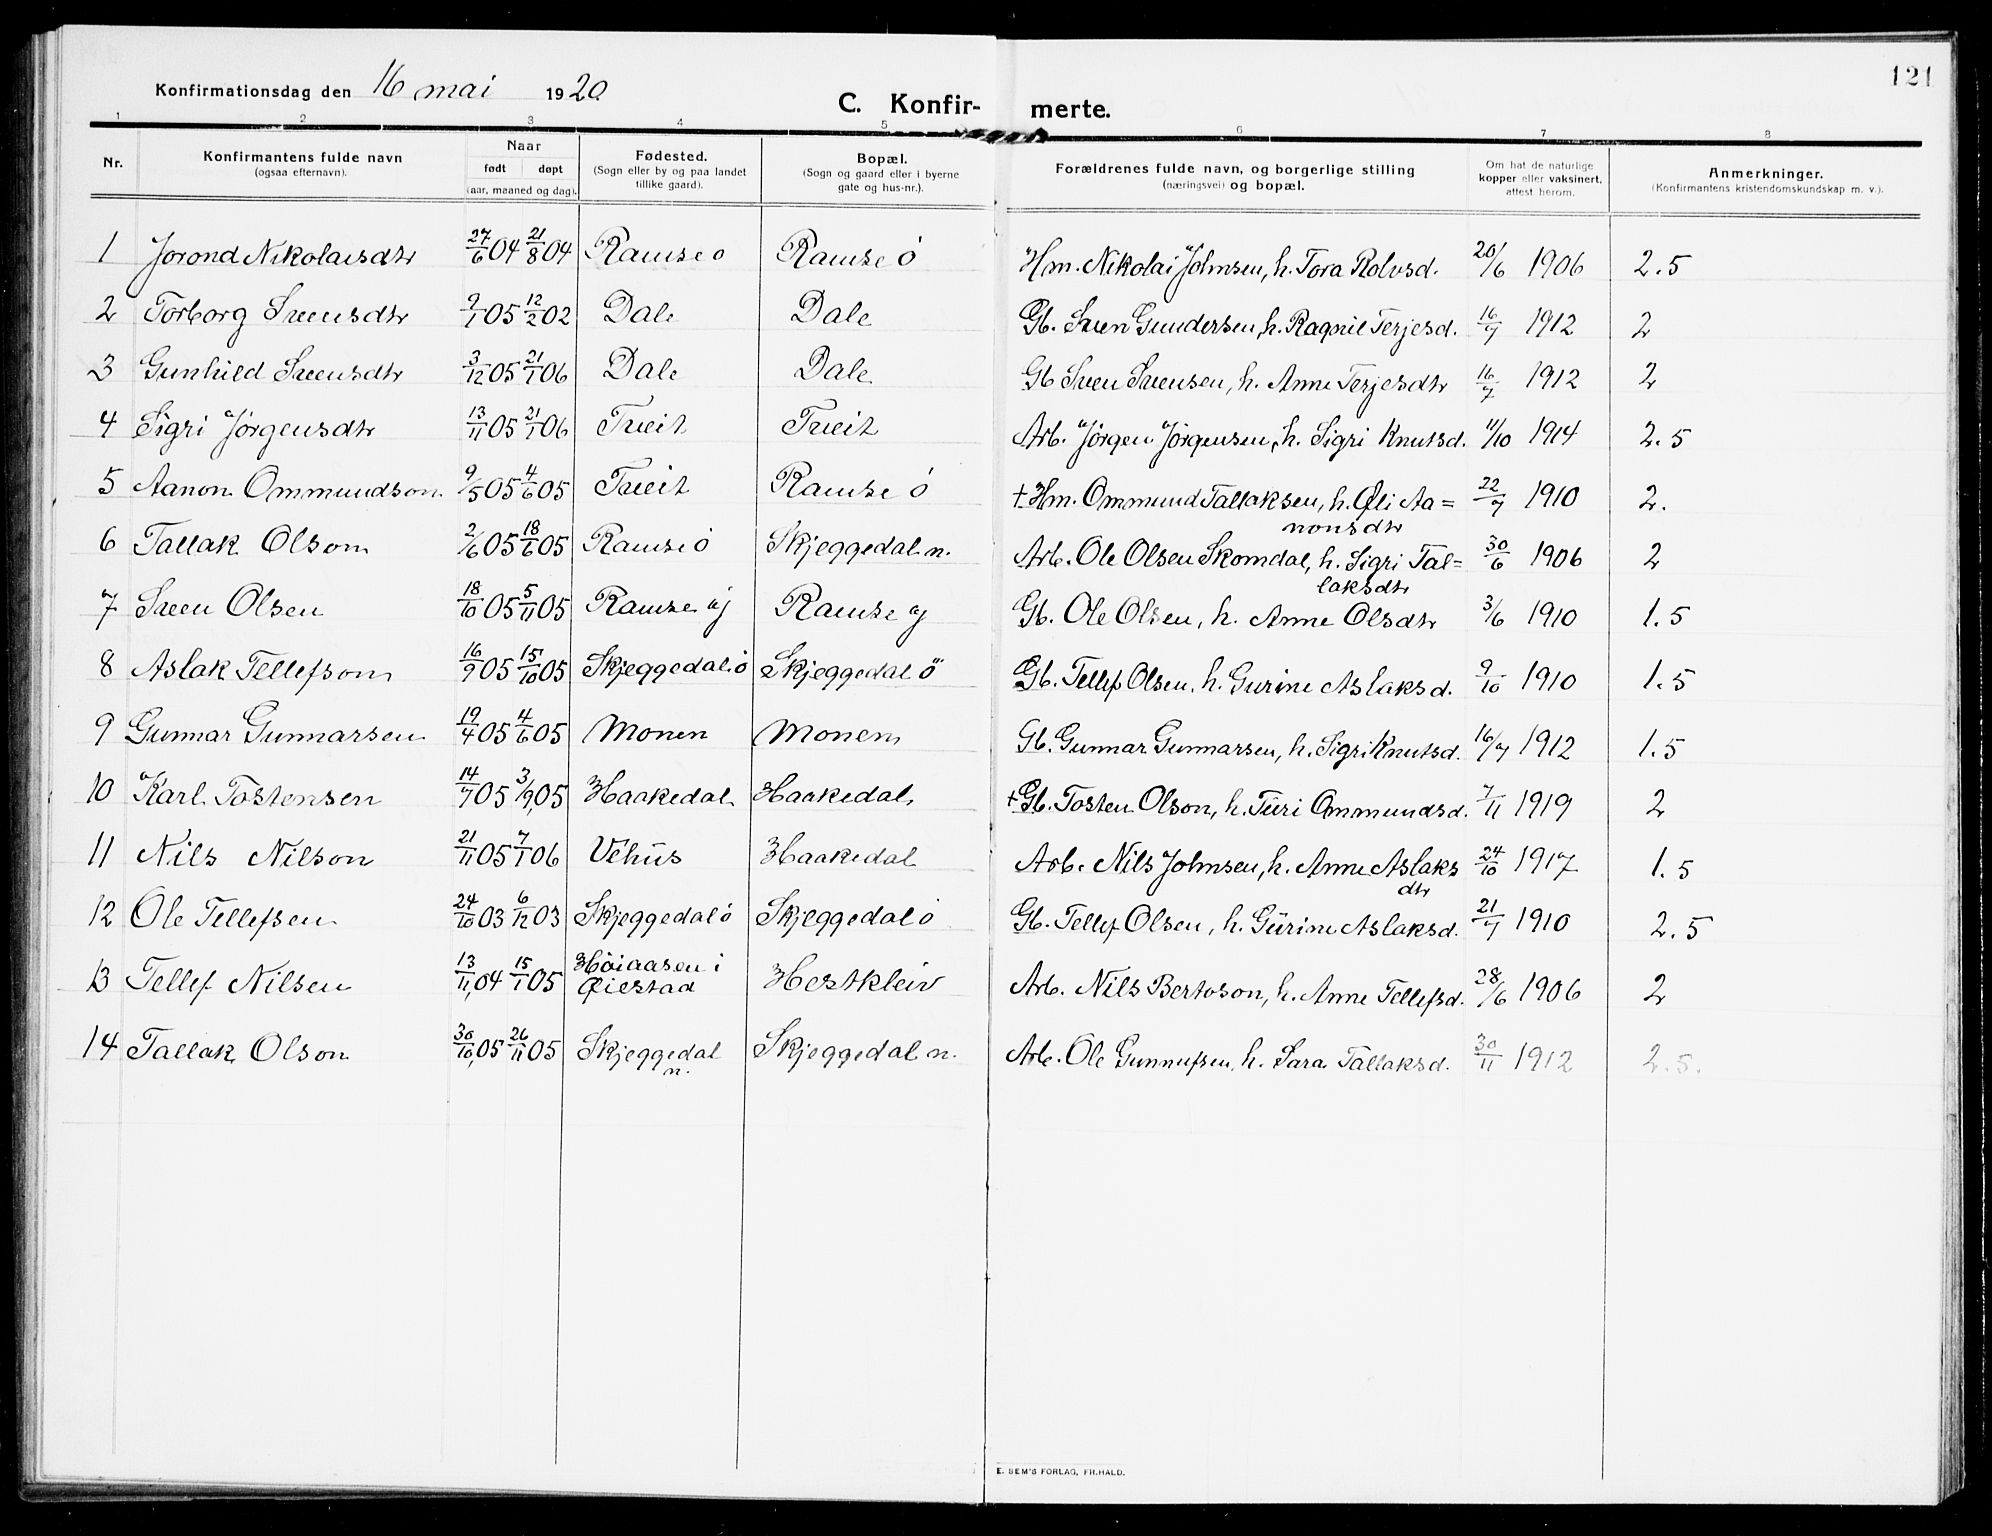 121
Konfirmationsdag den 16 mai 1920
C. Konfir- merte.
1 2 3 4 5 6 7 8
Nr. Konfirmantens fulde navn (ogsaa efternavn). Naar født døpt (aar, maaned og dag). Fødested. (Sogn eller by og paa landet tillike gaard). Bopæl. (Sogn og gaard eller i byerne gate og hus-nr.). Forældrenes fulde navn, og borgerlige stilling (næringsvei) og bopæl. Om hat de naturlige kopper eller vaksinert, attest herom. Anmerkninger. (Konfirmantens kristendomskundskap m. v.).
1 Jorond Nikolaisdtr 27/6 04 21/8 04 Ramse ø Ramse ø Hm. Nikolai Johnsen, h. Tora Rolvsd. 20/6 1906 2.5
2 Torborg Sveensdtr 9/1 05 12/2 02 Dale Dale Gb. Sven Gundersen, h. Ragnil Terjesd. 16/7 1912 2
3 Gunhild Sveensdtr 3/12 05 21/1 06 Dale Dale Gb Sveen Sveensen, h. Anne Terjesdtr 16/7 1912 2
4 Sigri Jørgensdtr 13/11 05 21/1 06 Tveit Tveit Arb. Jørgen Jørgensen, h. Sigri Knutsd. 11/10 1914 2.5
5 Aanon Ommundson. 9/5 05 4/6 05 Tveit Ramse ø † Hm. Ommund Tallaksen, h. Øli Aa= 22/7 1910 2.
nonsdtr
6 Tallak Olsom 2/6 05 18/6 05 Ramse ø Skjeggedal n. Arb. Ole Olsen Skomdal, h. Sigri Tal= 30/6 1906 2
laksdtr
7 Sveen Olsen 18/10 05 5/11 05 Ramse y Ramse y Gb. Ole Olsen, h. Anne Olsdtr 3/6 1910 1.5
8 Aslak Tellefson 16/9 05 15/10 05 Skjeggedal ø Skjeggedal ø Gb. Tellef Olsen, h. Gurine Aslaksd. 9/10 1910 1.5
9 Gunnar Gunnarsen 19/4 05 4/6 05 Monen Monen Gb. Gunnar Gunnarsen, h. Sigri Knutsd. 16/7 1912 1.5
10 Karl Tostensen 14/7 05 3/9, 05 Haakedal Haakedal † Gb. Tosten Olson, h. Turi Ommundsd. 7/11 1919 2
11 Nils Nilson 21/11 05 7/1 06 Vehus Haakedal Arb. Nils Johnsen, h. Anne Aslaks 24/10 1917 1.5
dtr
12 Ole Tellefsen 24/10 03 6/12 03 Skjeggedal ø Skjeggedal ø Gb. Tellef Olsen, h. Gurine Aslaksd. 21/7 1910 2.5
13 Tellef Nilsen 13/11, 04 15/1 05 Høiaasen i Øiestad Hestkleiv Arb. Nils Bertoson, h. Anne Tellefsd. 28/6 1906 2
14 Tallak Olson 30/10, 05 26/11 05 Skjeggedal n. Skjeggedal n. Arb. Ole Gunnufsen, h. Sara Tallaksd. 30/11 1912 2.5.
E. SEM'S FORLAG, FR.HALD.